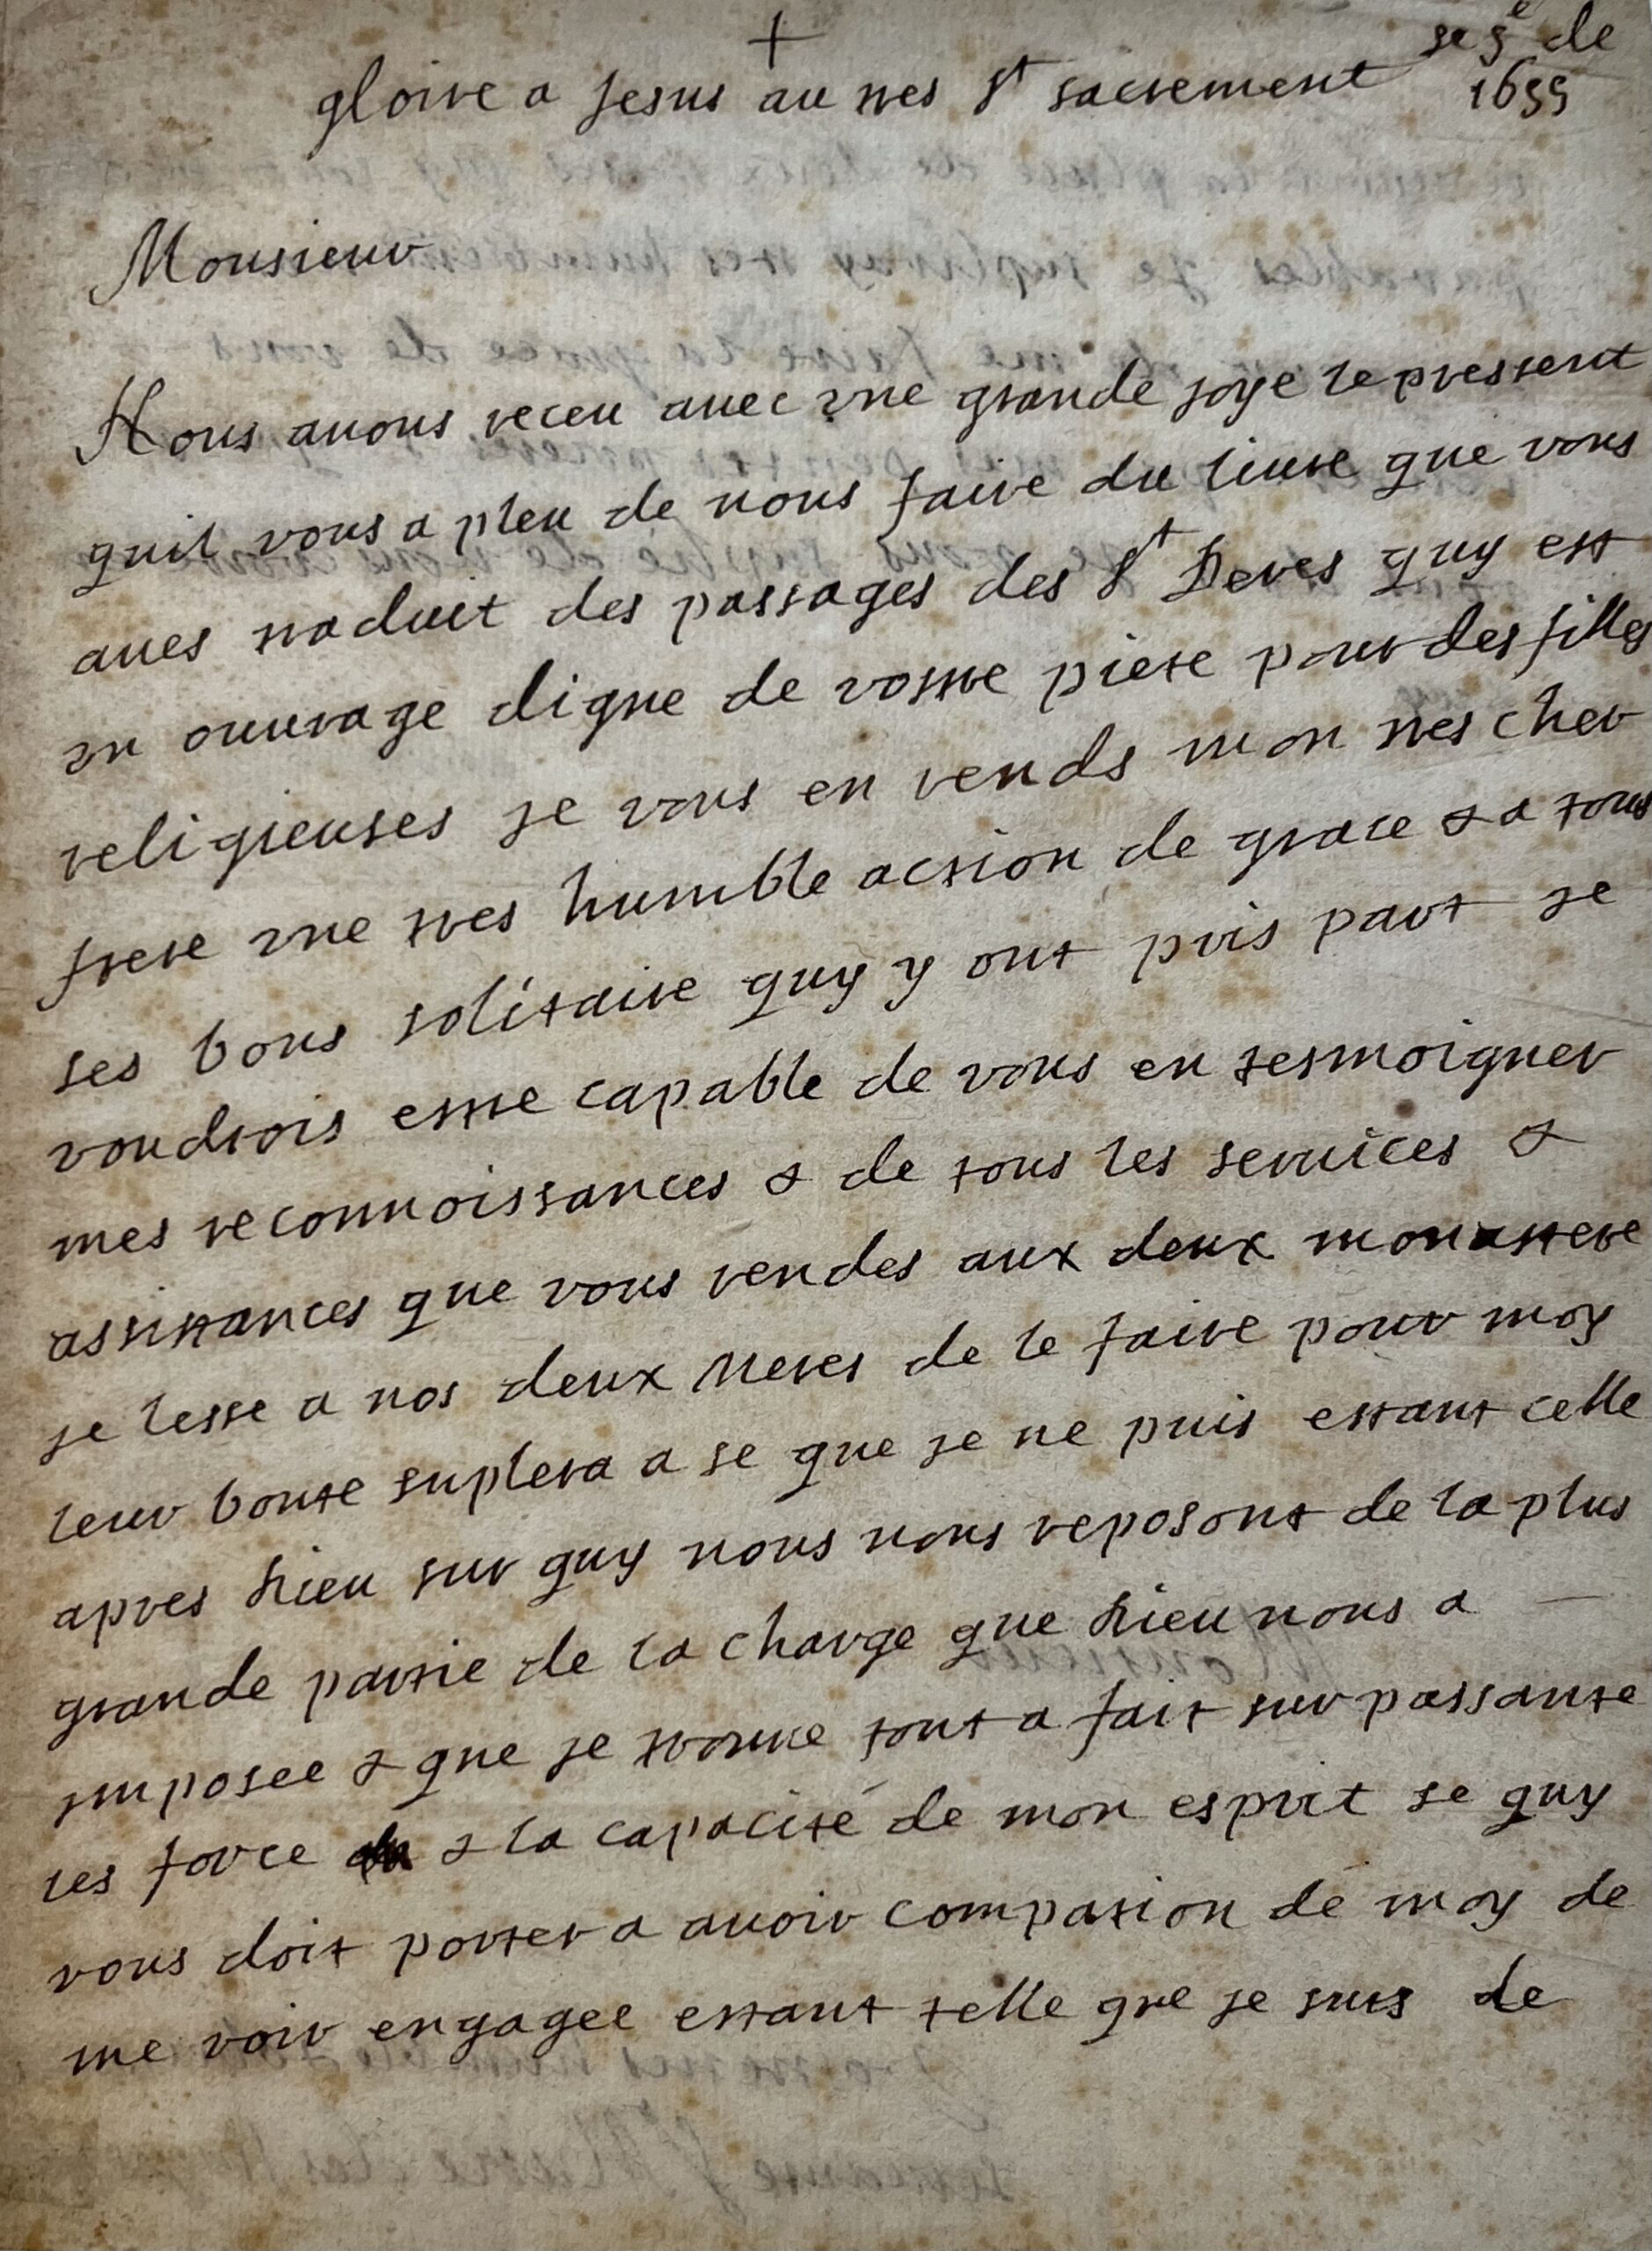 +
gloire a Jesus au tres St sacrement
se 5e de
1655
Monsieur
Nous auons receu auec vne grande joye le pressent
quil vous a pleu de nous faire du liure que vous
aues traduit des passages des St Peres quy est
vn ouurage digne de vostre piete pour des filles
religieuses je vous en rends mon tres cher
frere vne tres humble action de grace & a tous
ses bons solitaire quy y ont pris part je
voudrois estre capable de vous en tesmoigner
mes reconnoissances & de tous les seruices &
assistances que vous rendes aux deux monastere
je lesse a nos deux Meres de le faire pour moy
leur bonte suplera a se que je ne puis estant celle
apres Dieu sur quy nous nous reposont de la plus
grande partie de la charge que Dieu nous a
jmposee & que je trouue tout a fait surpassante
les force & la capacité de mon esprit se quy
vous doit porter a auoir compasion de moy de
me voir engagee estant telle que je suis de